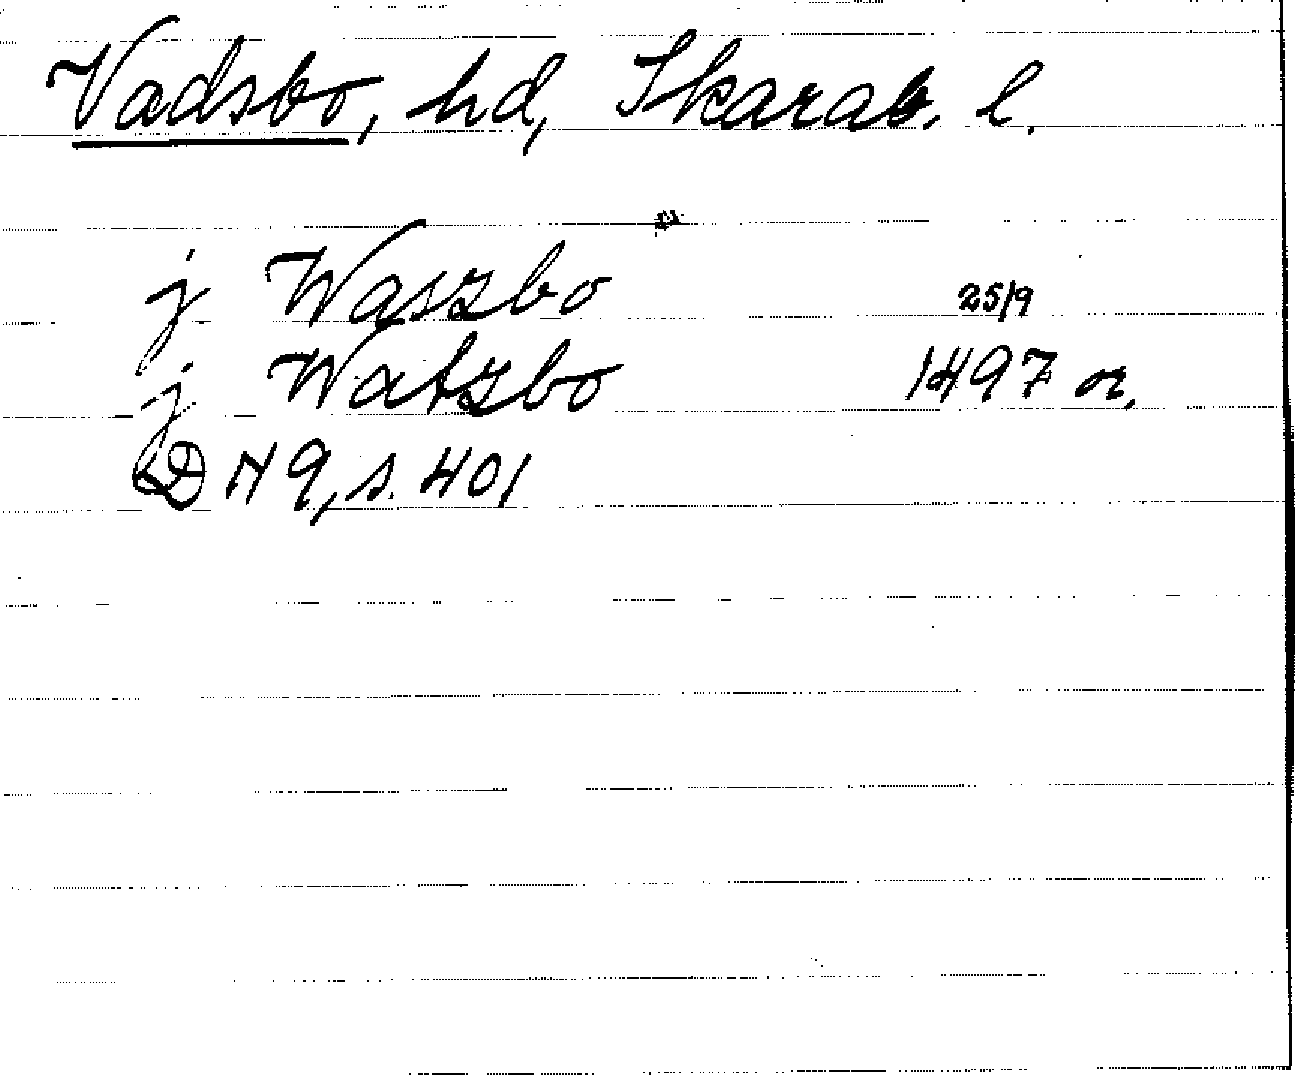 Vadsbo, hd, Skarab. l.
j Waszbo 25/9
j Watzbo 1497 or.
DN 9, s. 401